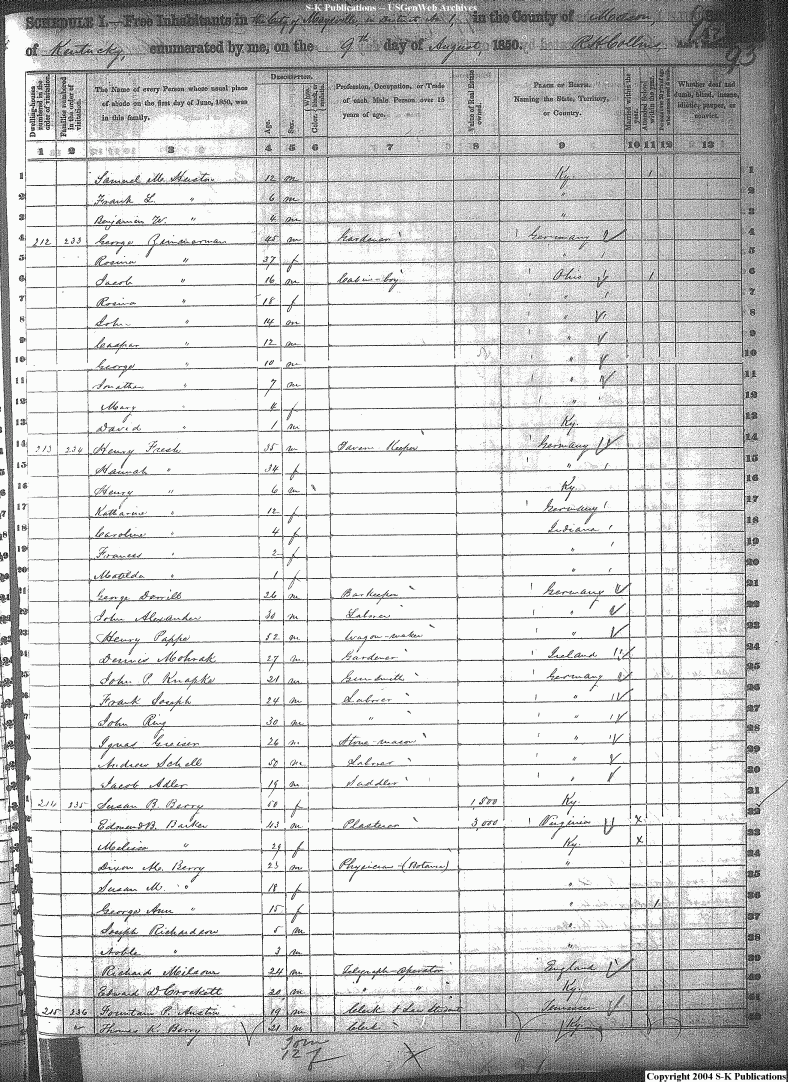 S-K Publications -- USGenWeb Archives
SCHEDULE I.—Free Inhabitants in the City of Maysville, in District No. 1, in the County of Mason, State
of Kentucky, enumerated by me, on the 9th day of August, 1850. R. H. Collins Ass't Marshal.
93
Dwelling-houses numbered in the order of visitation.
Families numbered in the order of visitation.
The Name of every Person whose usual place of abode on the first day of June, 1850, was in this family.
Description.
Age.
Sex.
Color, White, black, or mulatto.
Profession, Occupation, or Trade of each Male Person over 15 years of age.
Value of Real Estate owned.
Place of Birth. Naming the State, Territory, or Country.
Married within the year.
Attended School within the year.
Whether deaf and dumb, blind, insane, idiotic, pauper, or convict.
1 2 3 4 5 6 7 8 9 10 11 12 13
1 Samuel M. Huston 12 m Ky. 1 1
2 Frank L. " 6 m " 2
3 Benjamin W. " 4 m " 3
4 212 233 George Zimmerman 45 m Gardener Germany 4
5 Rosina " 37 f " 5
6 Jacob " 16 m Cabin-boy Ohio 1 6
7 Rosina " 18 f " 7
8 John " 14 m " 8
9 Caspar " 12 m " 9
10 George " 10 m " 10
11 Jonathan " 7 m " 11
12 Mary " 4 f " 12
13 David " 1 m Ky. 13
14 213 234 Henry Fresh 35 m Tavern Keeper Germany 14
15 Hannah " 34 f " 15
16 Henry " 6 m Ky. 16
17 Katharine " 12 f Germany 17
18 Caroline " 4 f Indiana 18
19 Frances " 2 f " 19
20 Matilda " 1 f " 20
21 George Derrill 26 m Barkeeper Germany 21
22 John Alexander 30 m Laborer " 22
23 Henry Pappe 52 m Wagon-maker " 23
24 Dennis Mohrak 27 m Gardener Ireland 24
25 John P. Knapke 21 m Gunsmith Germany 25
26 Frank Joseph 24 m Laborer " 26
John Ring 30 m " "
28 Ignas Greiser 26 m Stone-mason " 28
Andrew Schell 50 m Laborer " 29
Jacob Adler 19 m Saddler "
214 235 Susan B. Berry 50 f 1,500 Ky.
Edmund B. Barker 43 m Plasterer 3,000 Virginia x
Melissa " 29 f Ky. x
Dixon M. Berry 23 m Physician (Botanic) "
Susan M. " 18 f "
George Ann " 15 f " 1
Joseph Richardson 5 m "
Noble " 3 m "
Richard Milsom 24 m Telegraph Operator England
Edward D. Crockett 20 m " " Ky.
215 236 Fountain P. Austin 19 m Clerk & Law Student Tennessee
" Thomas K. Berry 21 m Clerk Ky.
30 m
12 f
Copyright 2004 S-K Publications